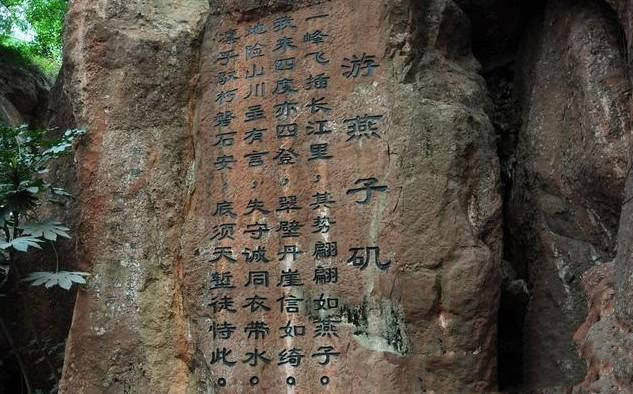 游燕子矶
一峰飞插长江里，其势翩翩如燕子。
我来四度亦四登，翠壁丹崖信如绮。
地险山川有言，失守诚同衣带水。
凛乎驭朽磐石安，底须天堑徒恃此。